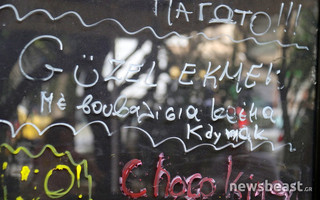 ΠΑΓΩΤΟ!!!
GÜZEL EKMEK
Μὲ βουβαλίσια κρέμα
Kaymak
Choco
newsbeast.GR